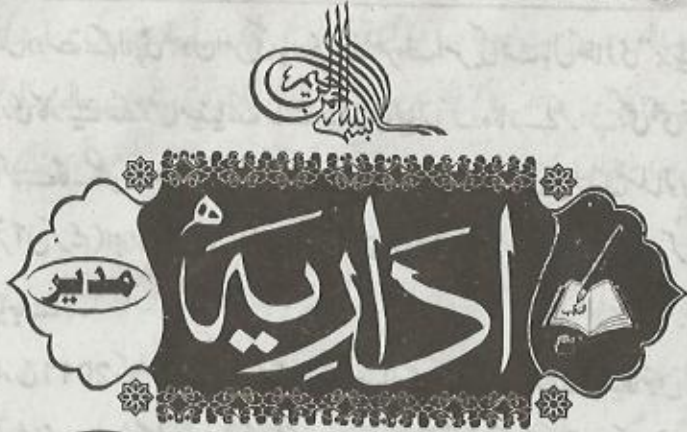 بسم الله الرحمن الرحيم
اداریہ
مدیر